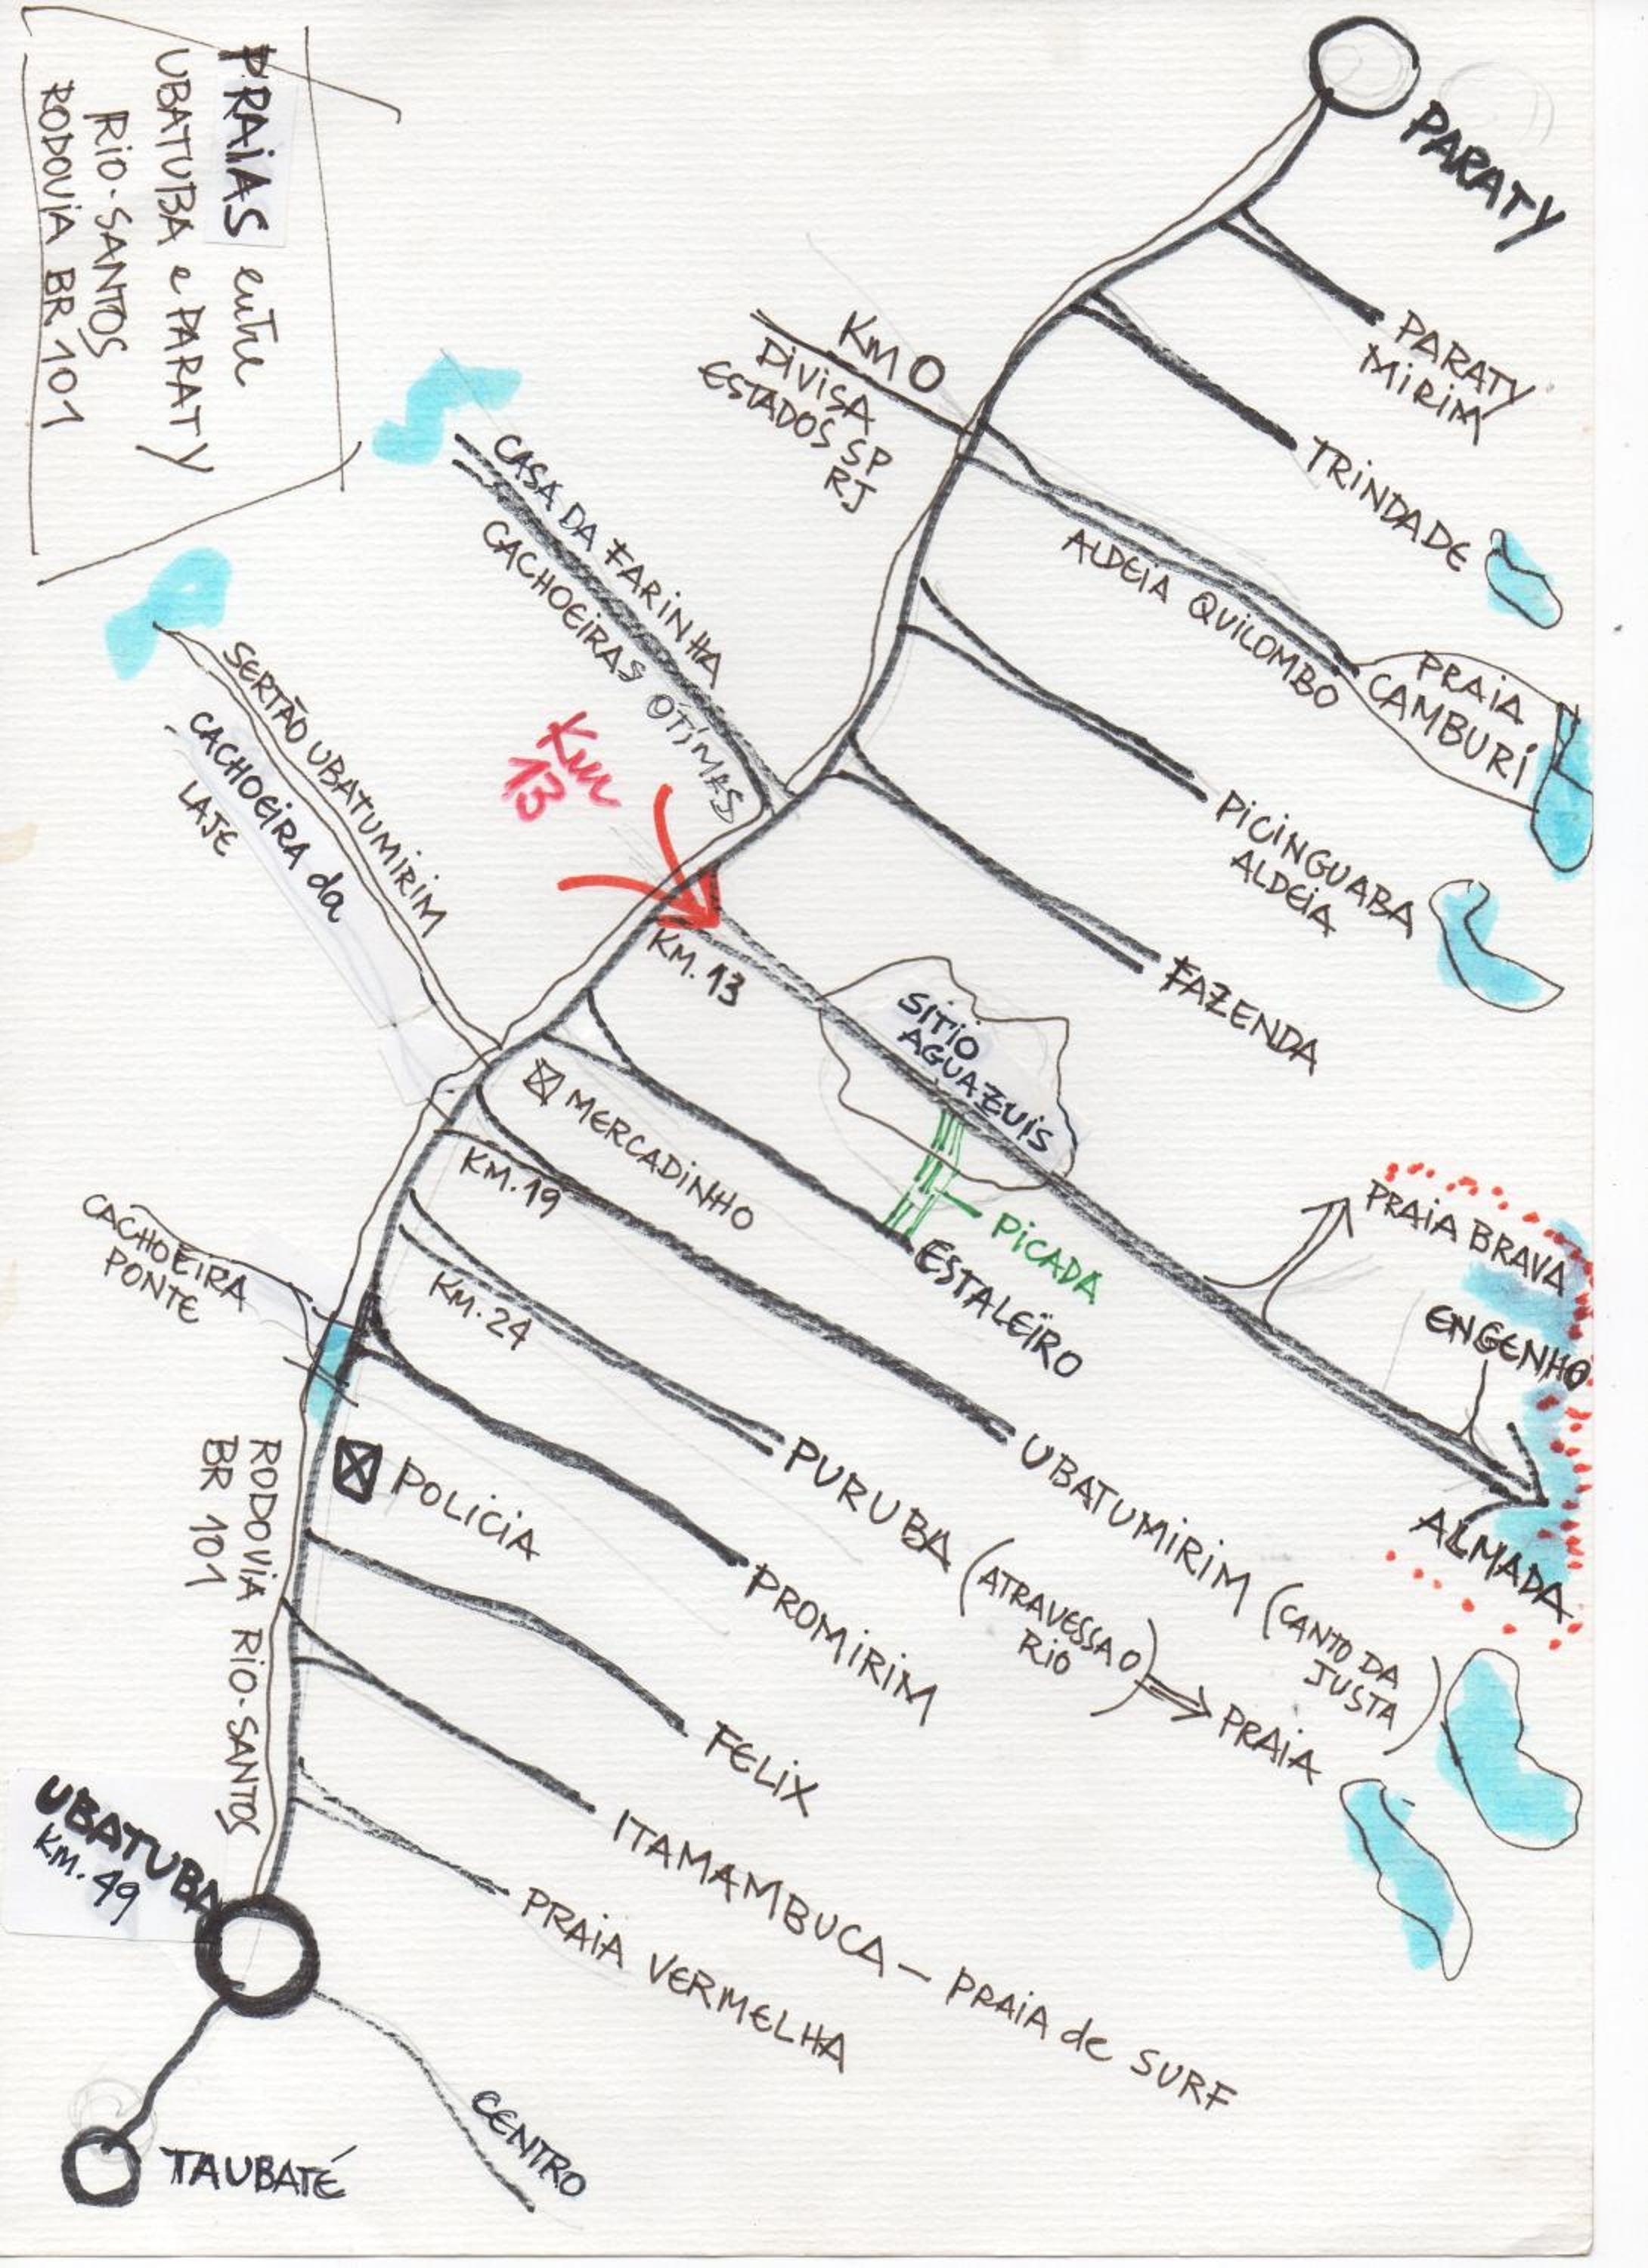 PRAIAS entre
UBATUBA e PARATY
RIO-SANTOS
RODOVIA BR 101
PARATY
PARATY
MIRIM
TRINDADE
KM 0
DIVISA
ESTADOS SP
RJ
ALDEIA QUILOMBO
PRAIA
CAMBURI
CASA DA FARINHA
CACHOEIRAS OTIMAS
PICINGUABA
ALDEIA
FAZENDA
SERTÃO UBATUMIRIM
CACHOEIRA da
LAJE
Km
13
KM. 13
SITIO
AGUAZUIS
PICADA
PRAIA BRAVA
ENGENHO
ALMADA
MERCADINHO
ESTALEIRO
KM. 19
UBATUMIRIM (CANTO DA
JUSTA)
KM. 24
PURUBA (ATRAVESSA O
RIO) ⇒ PRAIA
CACHOEIRA
PONTE
PROMIRIM
POLICIA
FELIX
RODOVIA RIO-SANTOS
BR 101
ITAMAMBUCA – PRAIA de SURF
PRAIA VERMELHA
UBATUBA
KM. 49
CENTRO
TAUBATÉ